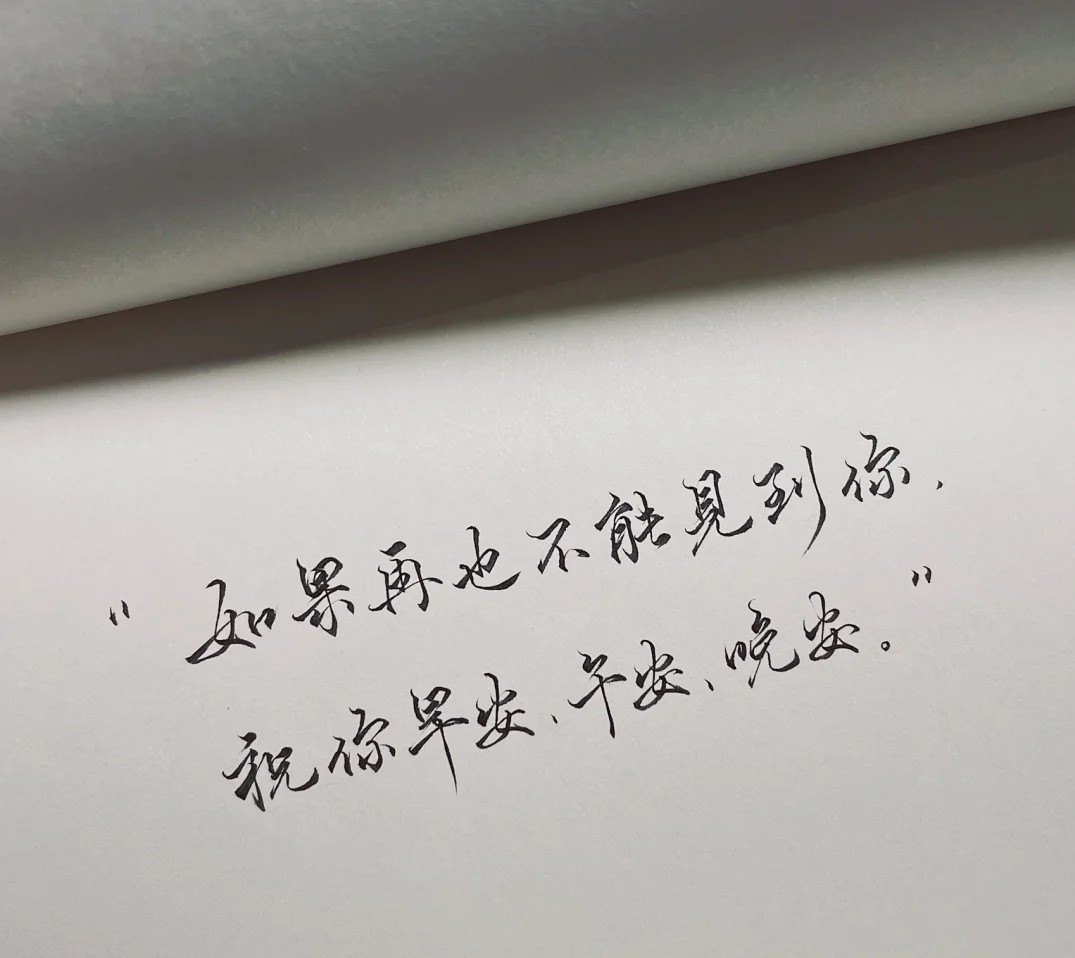 "如果再也不能見到你,
祝你早安、午安、晚安。"